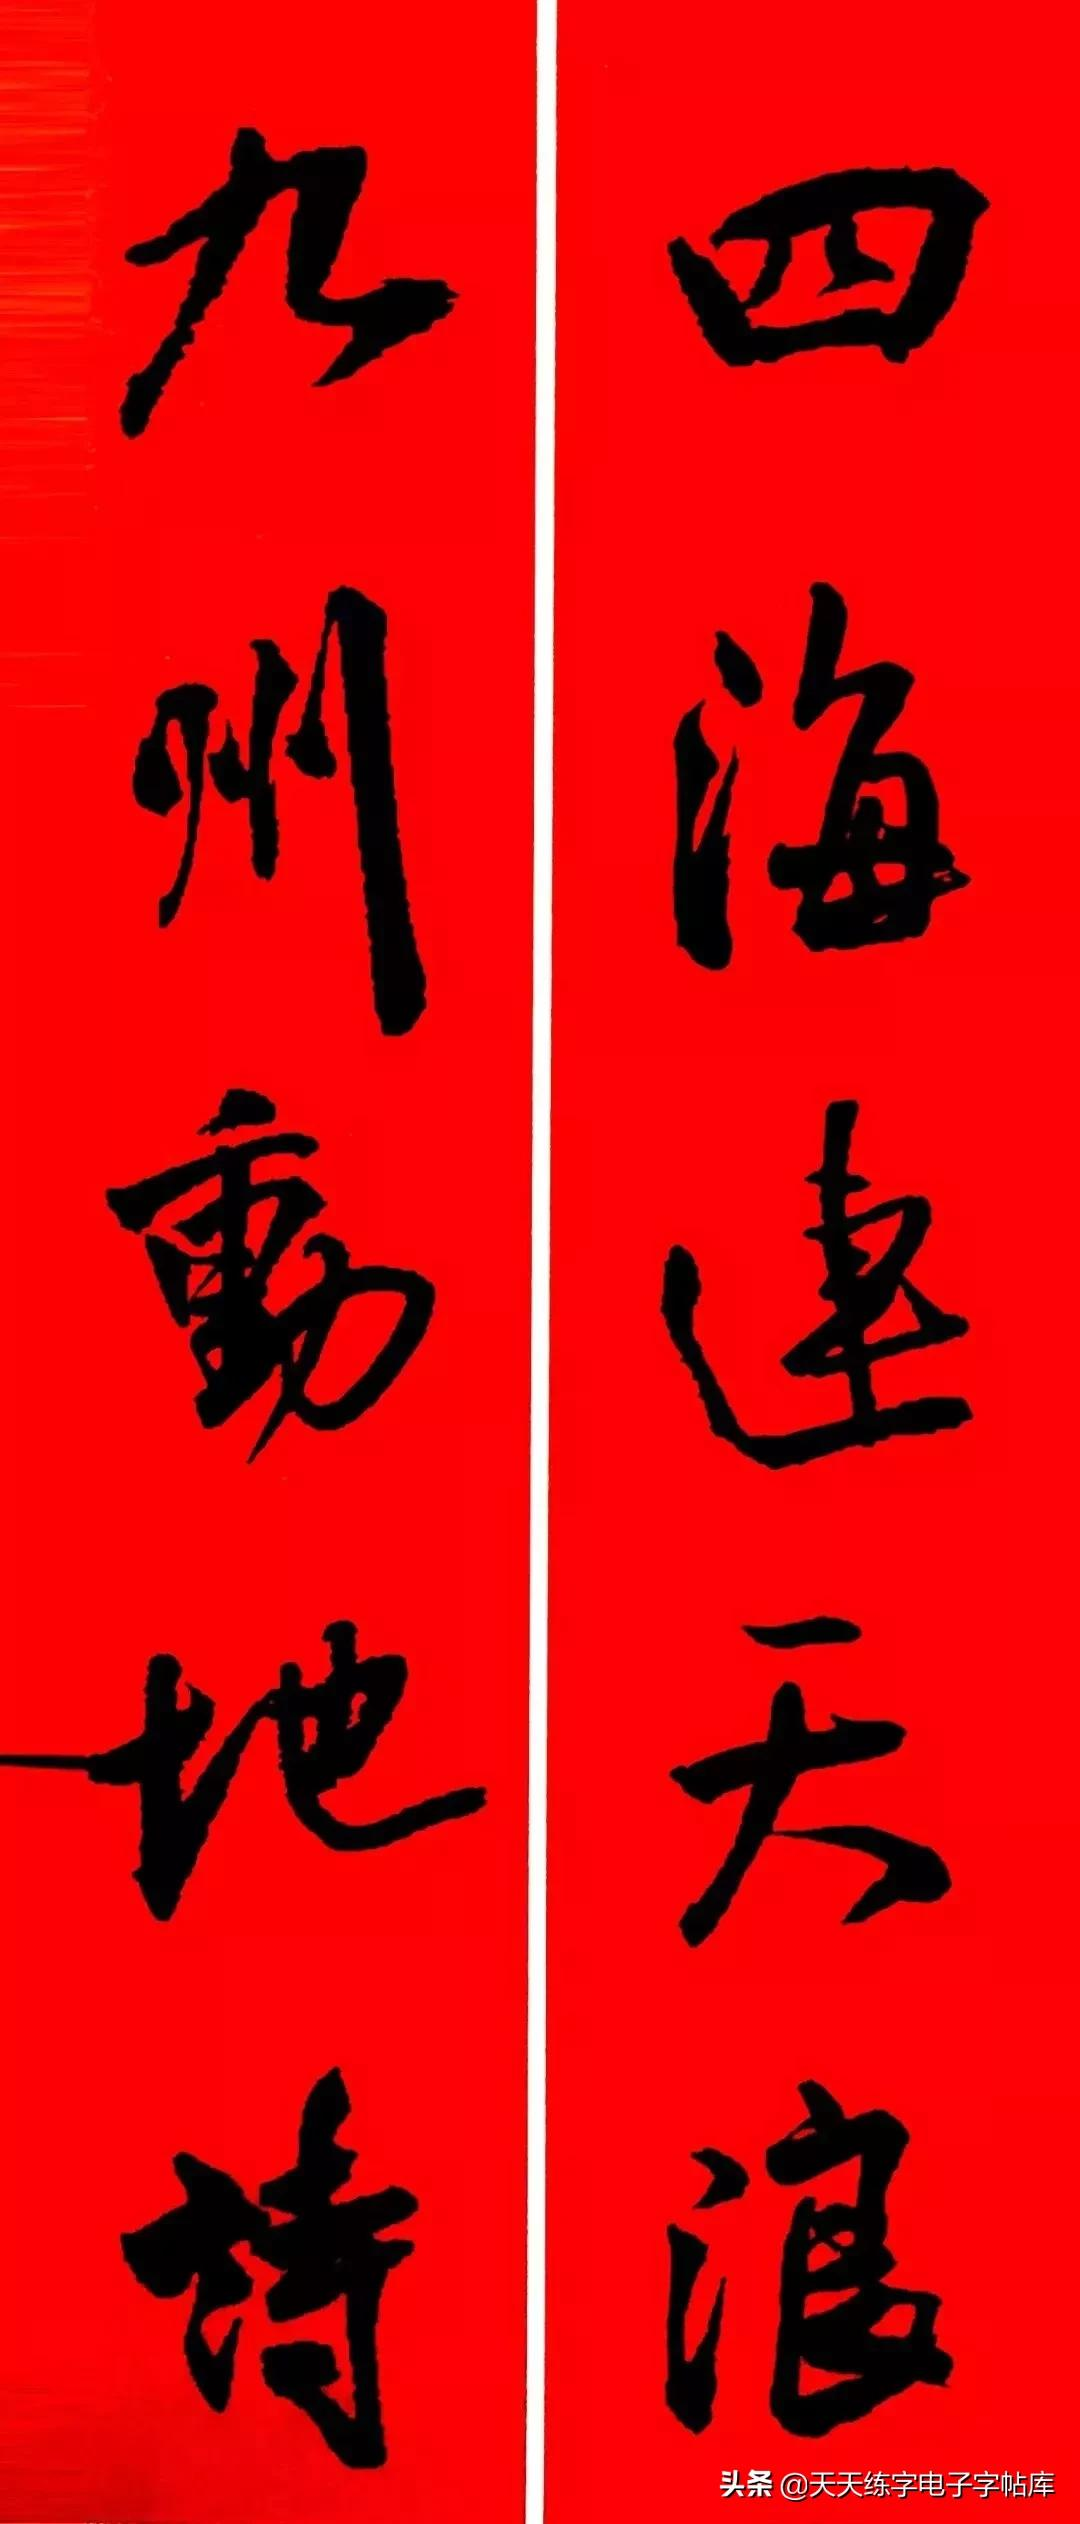 四海連天浪
九州動地詩
头条 @天天练字电子字帖库